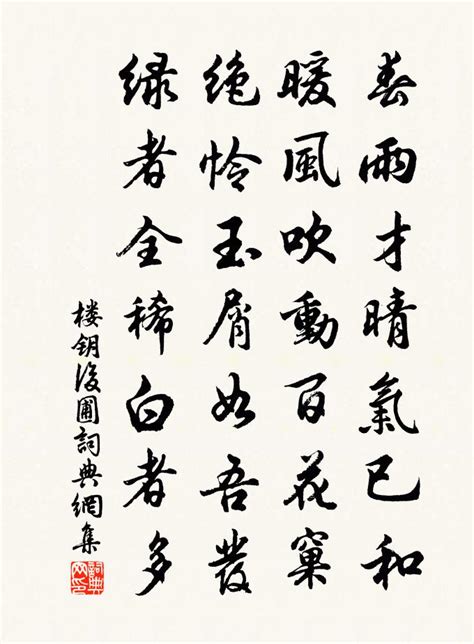 春雨才晴氣已和
暖風吹動百花窠
絶怜玉屑如吾發
緑者全稀白者多
楼钥後圃詞典網集